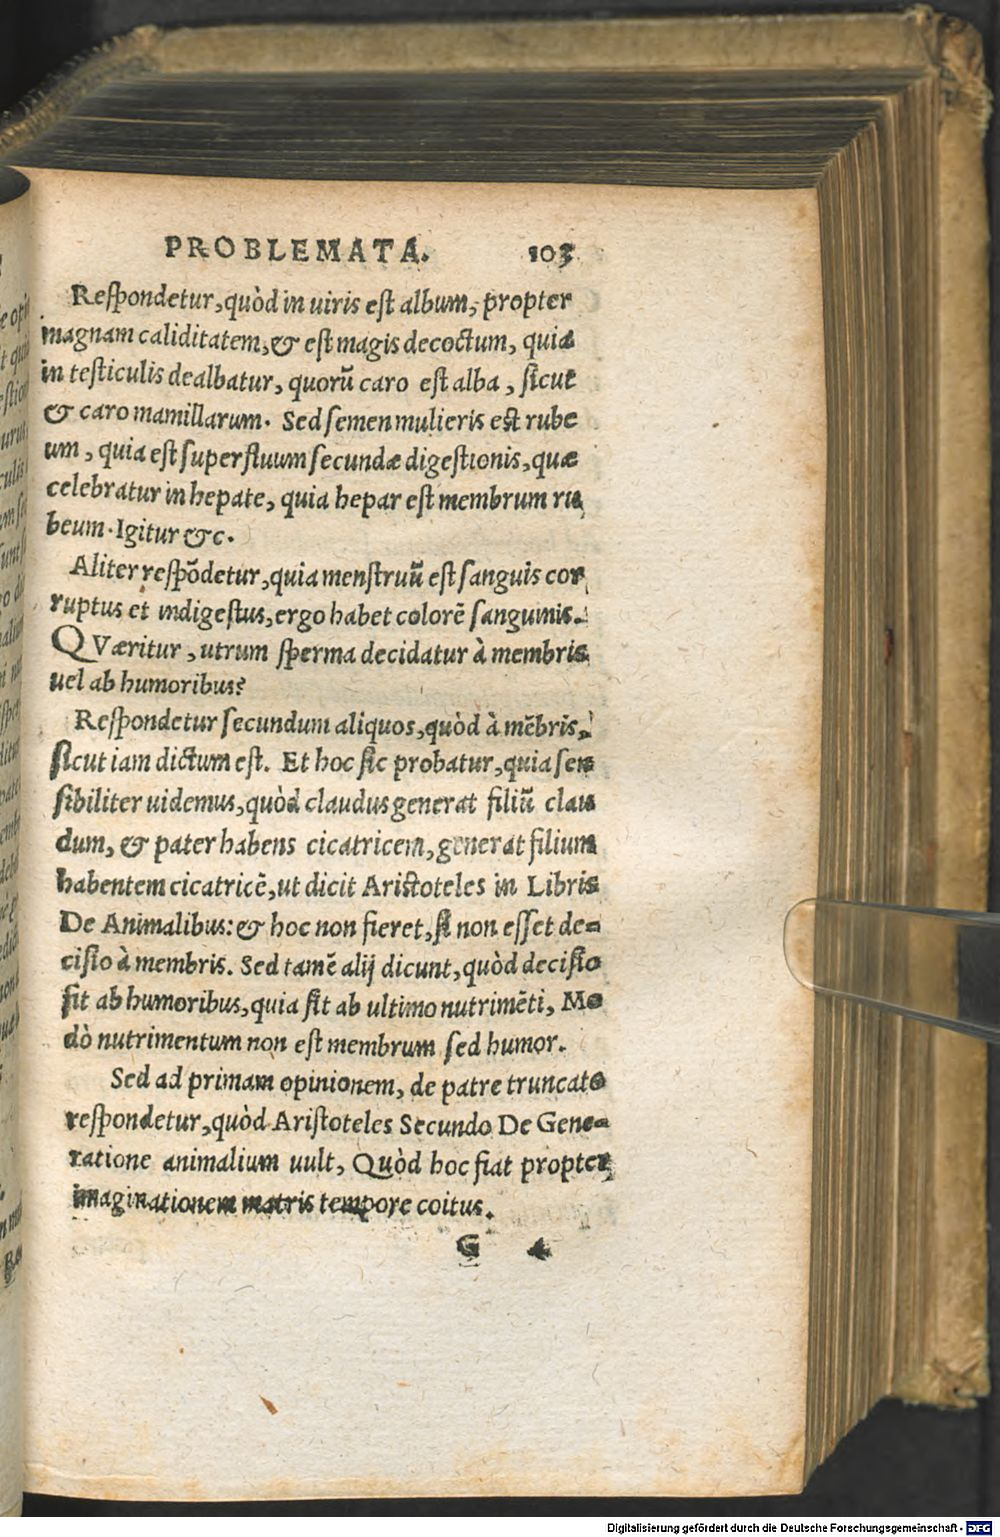 PROBLEMATA. 103
Respondetur, quòd in uiris est album, propter
magnam caliditatem, & est magis decoctum, quia
in testiculis dealbatur, quorũ caro est alba, sicut
& caro mamillarum. Sed semen mulieris est rube
um, quia est superfluum secundæ digestionis, quæ
celebratur in hepate, quia hepar est membrum ru
beum. Igitur &c.
Aliter respõdetur, quia menstruũ est sanguis cor
ruptus et indigestus, ergo habet colorẽ sanguinis.
QVæritur, utrum sperma decidatur à membris
uel ab humoribus?
Respondetur secundum aliquos, quòd à mẽbris,
sicut iam dictum est. Et hoc sic probatur, quia sen
sibiliter uidemus, quòd claudus generat filiũ clau
dum, & pater habens cicatricem, generat filium
habentem cicatricẽ, ut dicit Aristoteles in Libris
De Animalibus: & hoc non fieret, si non esset de=
cisio à membris. Sed tamẽ alij dicunt, quòd decisio
sit ab humoribus, quia sit ab ultimo nutrimẽti, Mo
dò nutrimentum non est membrum sed humor.
Sed ad primam opinionem, de patre truncato
respondetur, quòd Aristoteles Secundo De Gene=
ratione animalium uult, Quòd hoc fiat propter
imaginationem matris tempore coitus.
G 4
Digitalisierung gefördert durch die Deutsche Forschungsgemeinschaft - DFG